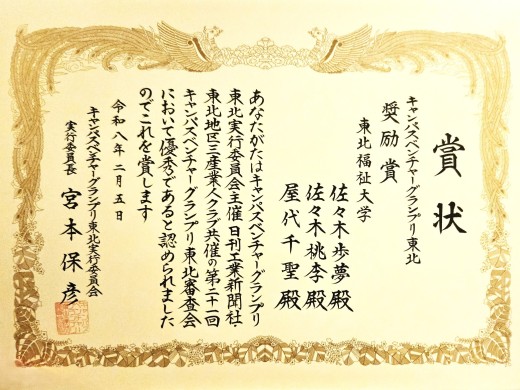 賞状
キャンパスベンチャーグランプリ東北
奨励賞
東北福祉大学
佐々木歩夢殿
佐々木桃李殿
屋代千聖殿
あなたがたはキャンパスベンチャーグランプリ
東北実行委員会主催日刊工業新聞社・
東北地区三産業人クラブ共催の第二十一回
キャンパスベンチャーグランプリ東北審査会
において優秀であると認められました
のでこれを賞します
令和八年二月五日
キャンパスベンチャーグランプリ東北実行委員会
実行委員長 宮本保彦